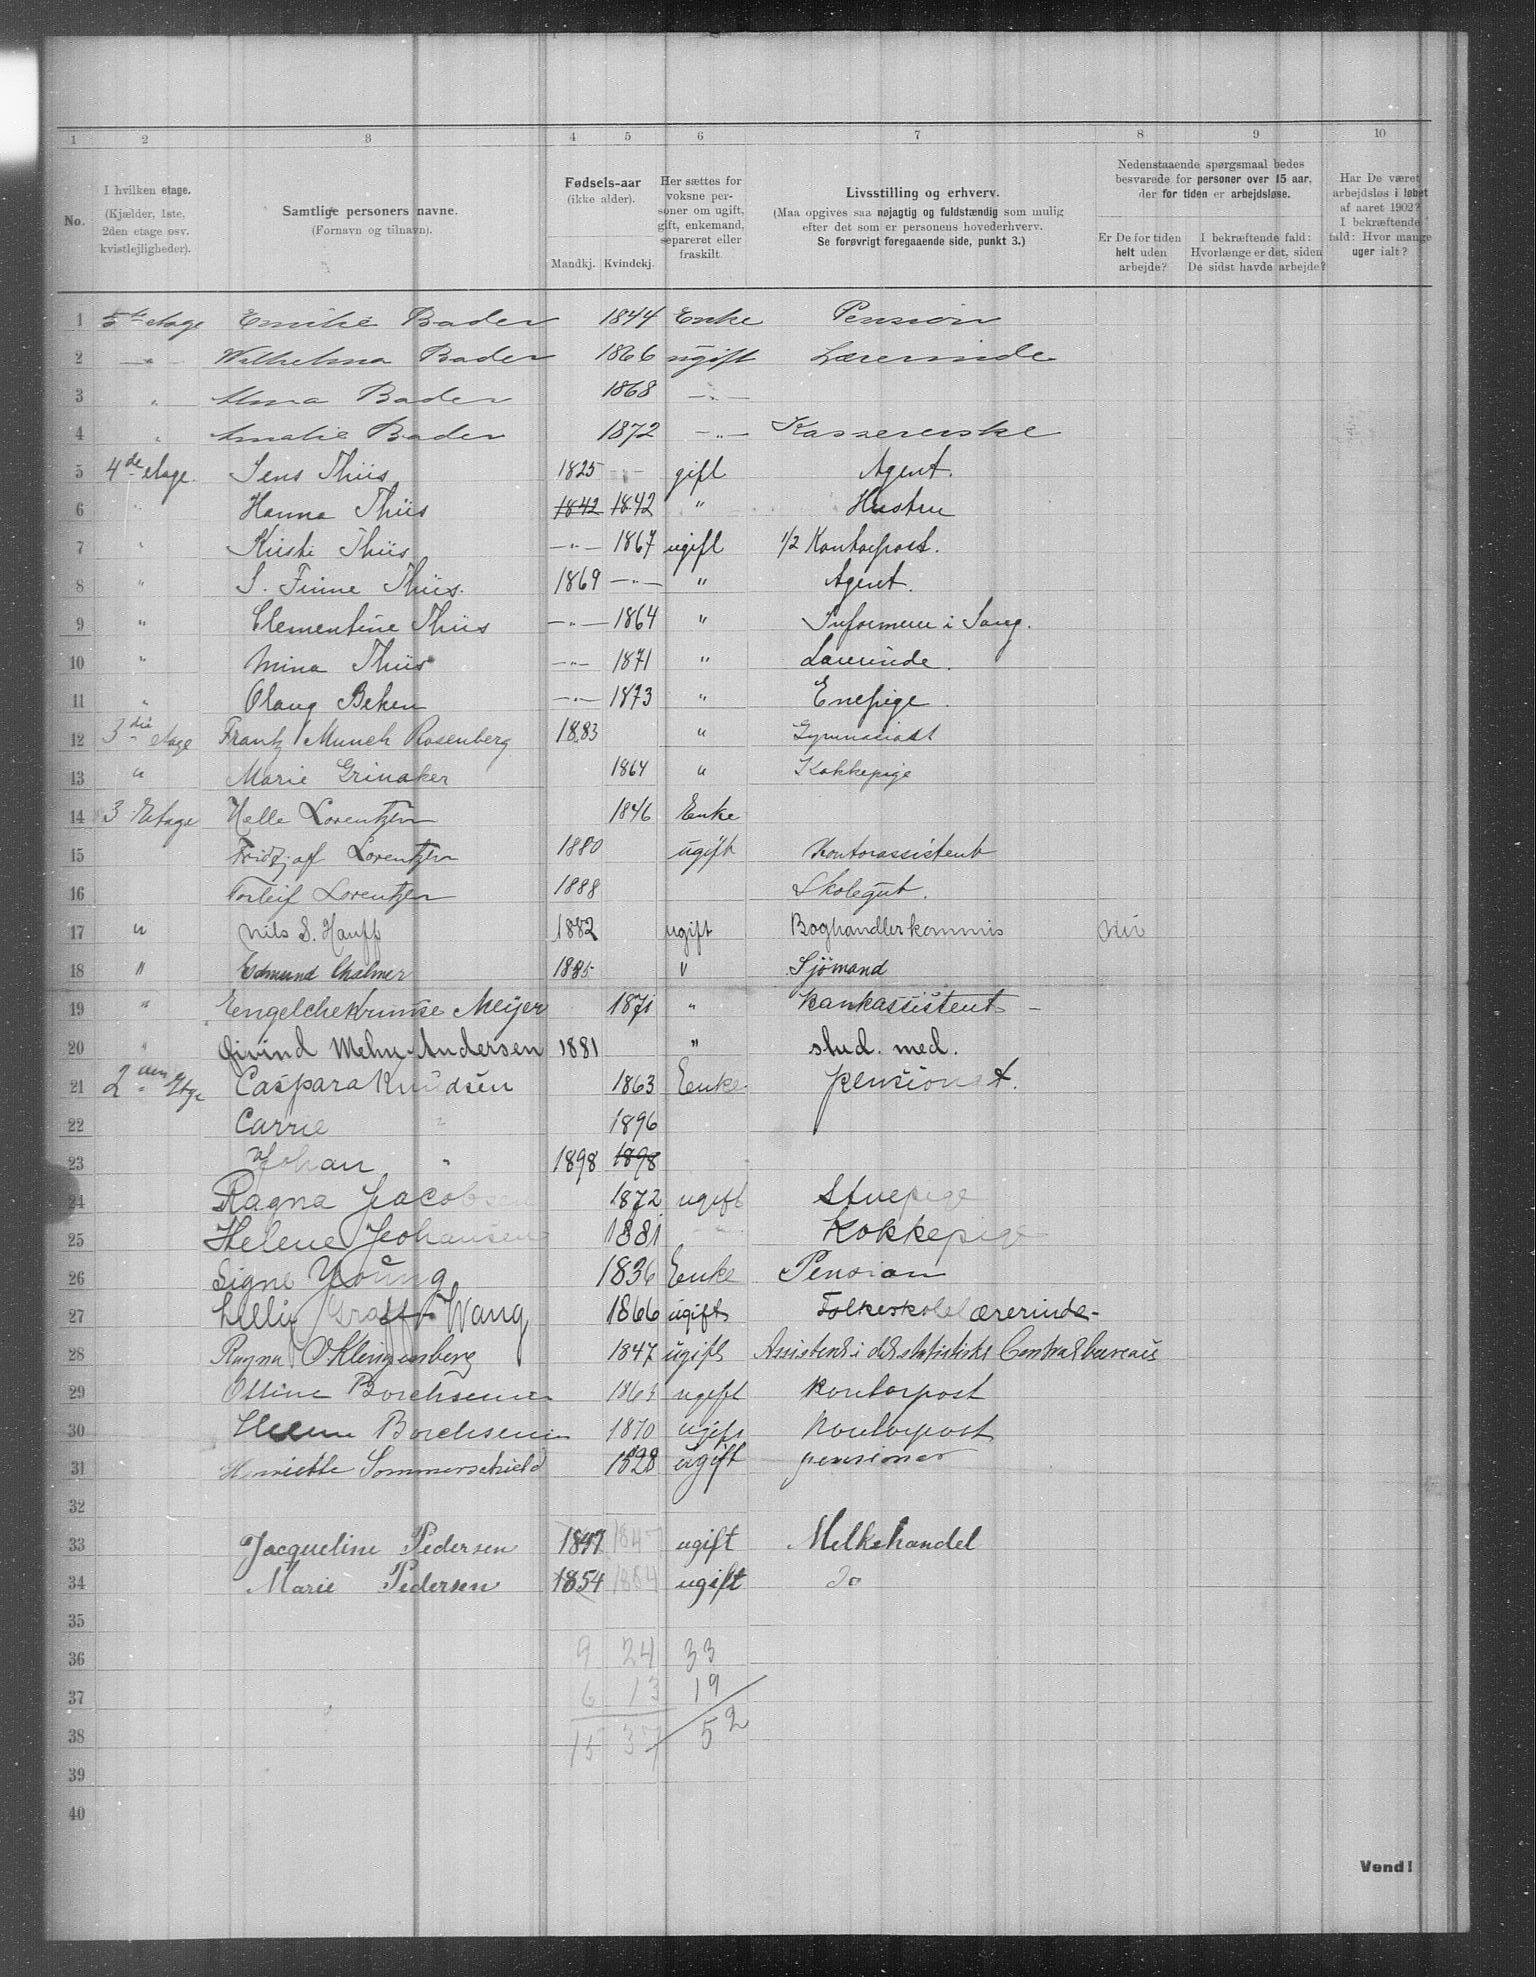 1 2 3 4 5 6 7 8 9 10
No.
I hvilken etage.
(Kjælder, 1ste,
2den etage osv.
kvistlejligheder).
Samtlige personers navne.
(Fornavn og tilnavn).
Fødsels-aar
(ikke alder).
Mandkj. Kvindekj.
Her sættes for
voksne per-
soner om ugift,
gift, enkemand,
separeret eller
fraskilt.
Livsstilling og erhverv.
(Maa opgives saa nøjagtig og fuldstændig som mulig
efter det som er personens hovederhverv.
Se forøvrigt foregaaende side, punkt 3.)
Nedenstaaende spørgsmaal bedes
besvarede for personer over 15 aar,
der for tiden er arbejdsløse.
Er De for tiden
helt uden
arbejde?
I bekræftende fald:
Hvorlænge er det, siden
De sidst havde arbejde?
Har De været
arbejdsløs i løbet
af aaret 1902?
I bekræftende
fald: Hvor mange
uger ialt?
1 5te etage Emilie Bader 1844 Enke Pension
2 — " — Wilhelmina Bader 1866 ugift Lærerinde
3 " Alma Bader 1868 — " —
4 " Amalie Bader 1872 — " — Kassererske
5 4de etage. Jens Thiis 1825 — " — gift Agent.
6 " Hanna Thiis 1842 1842 " Hustru
7 " Kirsti Thiis — " — 1867 ugift 1/2 Kontorpost.
8 " S. Finne Thiis. 1869 — " — " Agent.
9 " Clementine Thiis — " — 1864 " Informerer i Sang.
10 " Mina Thiis — " — 1871 " Lærerinde.
11 " Olaug Beken — " — 1873 " Enepige.
12 3die etage Frantz Munch Rosenberg 1883 " Gymnasiast
13 " Marie Grinaker 1864 " Kokkepige
14 3. Etage Helle Lorentzen 1846 Enke
15 Fridtjof Lorentzen 1880 ugift Kontorassistent
16 Torleif Lorentzen 1888 Skolegut.
17 " Nils S. Hauff 1882 ugift Boghandlerkommis nei
18 " Edmund Chalmer 1885 " Sjömand
19 " Engelche Krumse Meijer 1871 " Bankassistent —
20 " Øivind Mehn-Andersen 1881 " stud. med.
21 2nen Etge Caspara Knudsen 1863 Enke pensionist.
22 Carrie " 1896
23 Johan " 1898 1898
24 Ragna Jacobsen 1872 ugift Stuepige
25 Helene Johansen 1881 — " — Kokkepige
26 Signe Young 1836 Enke Pension
27 Lelly Graff-Wang 1866 ugift Folkeskolelærerinde-
28 Ragna O Klingenberg 1847 ugift Assistent i det statistiske Centralbureau
29 Ottine Borchsenius ugift Kontorpost
30 Borchsenius 1870 ugift Kontorpost
31 Henriette Sommerschield 1828 ugift pensioner
32
33 Jacqueline Pedersen 1847 1847 ugift Melkehandel
34 Marie Pedersen 1854 1854 ugift do
35
36 9 24 33
37 6 13 19
38 15 37 52
39
40
Vend!